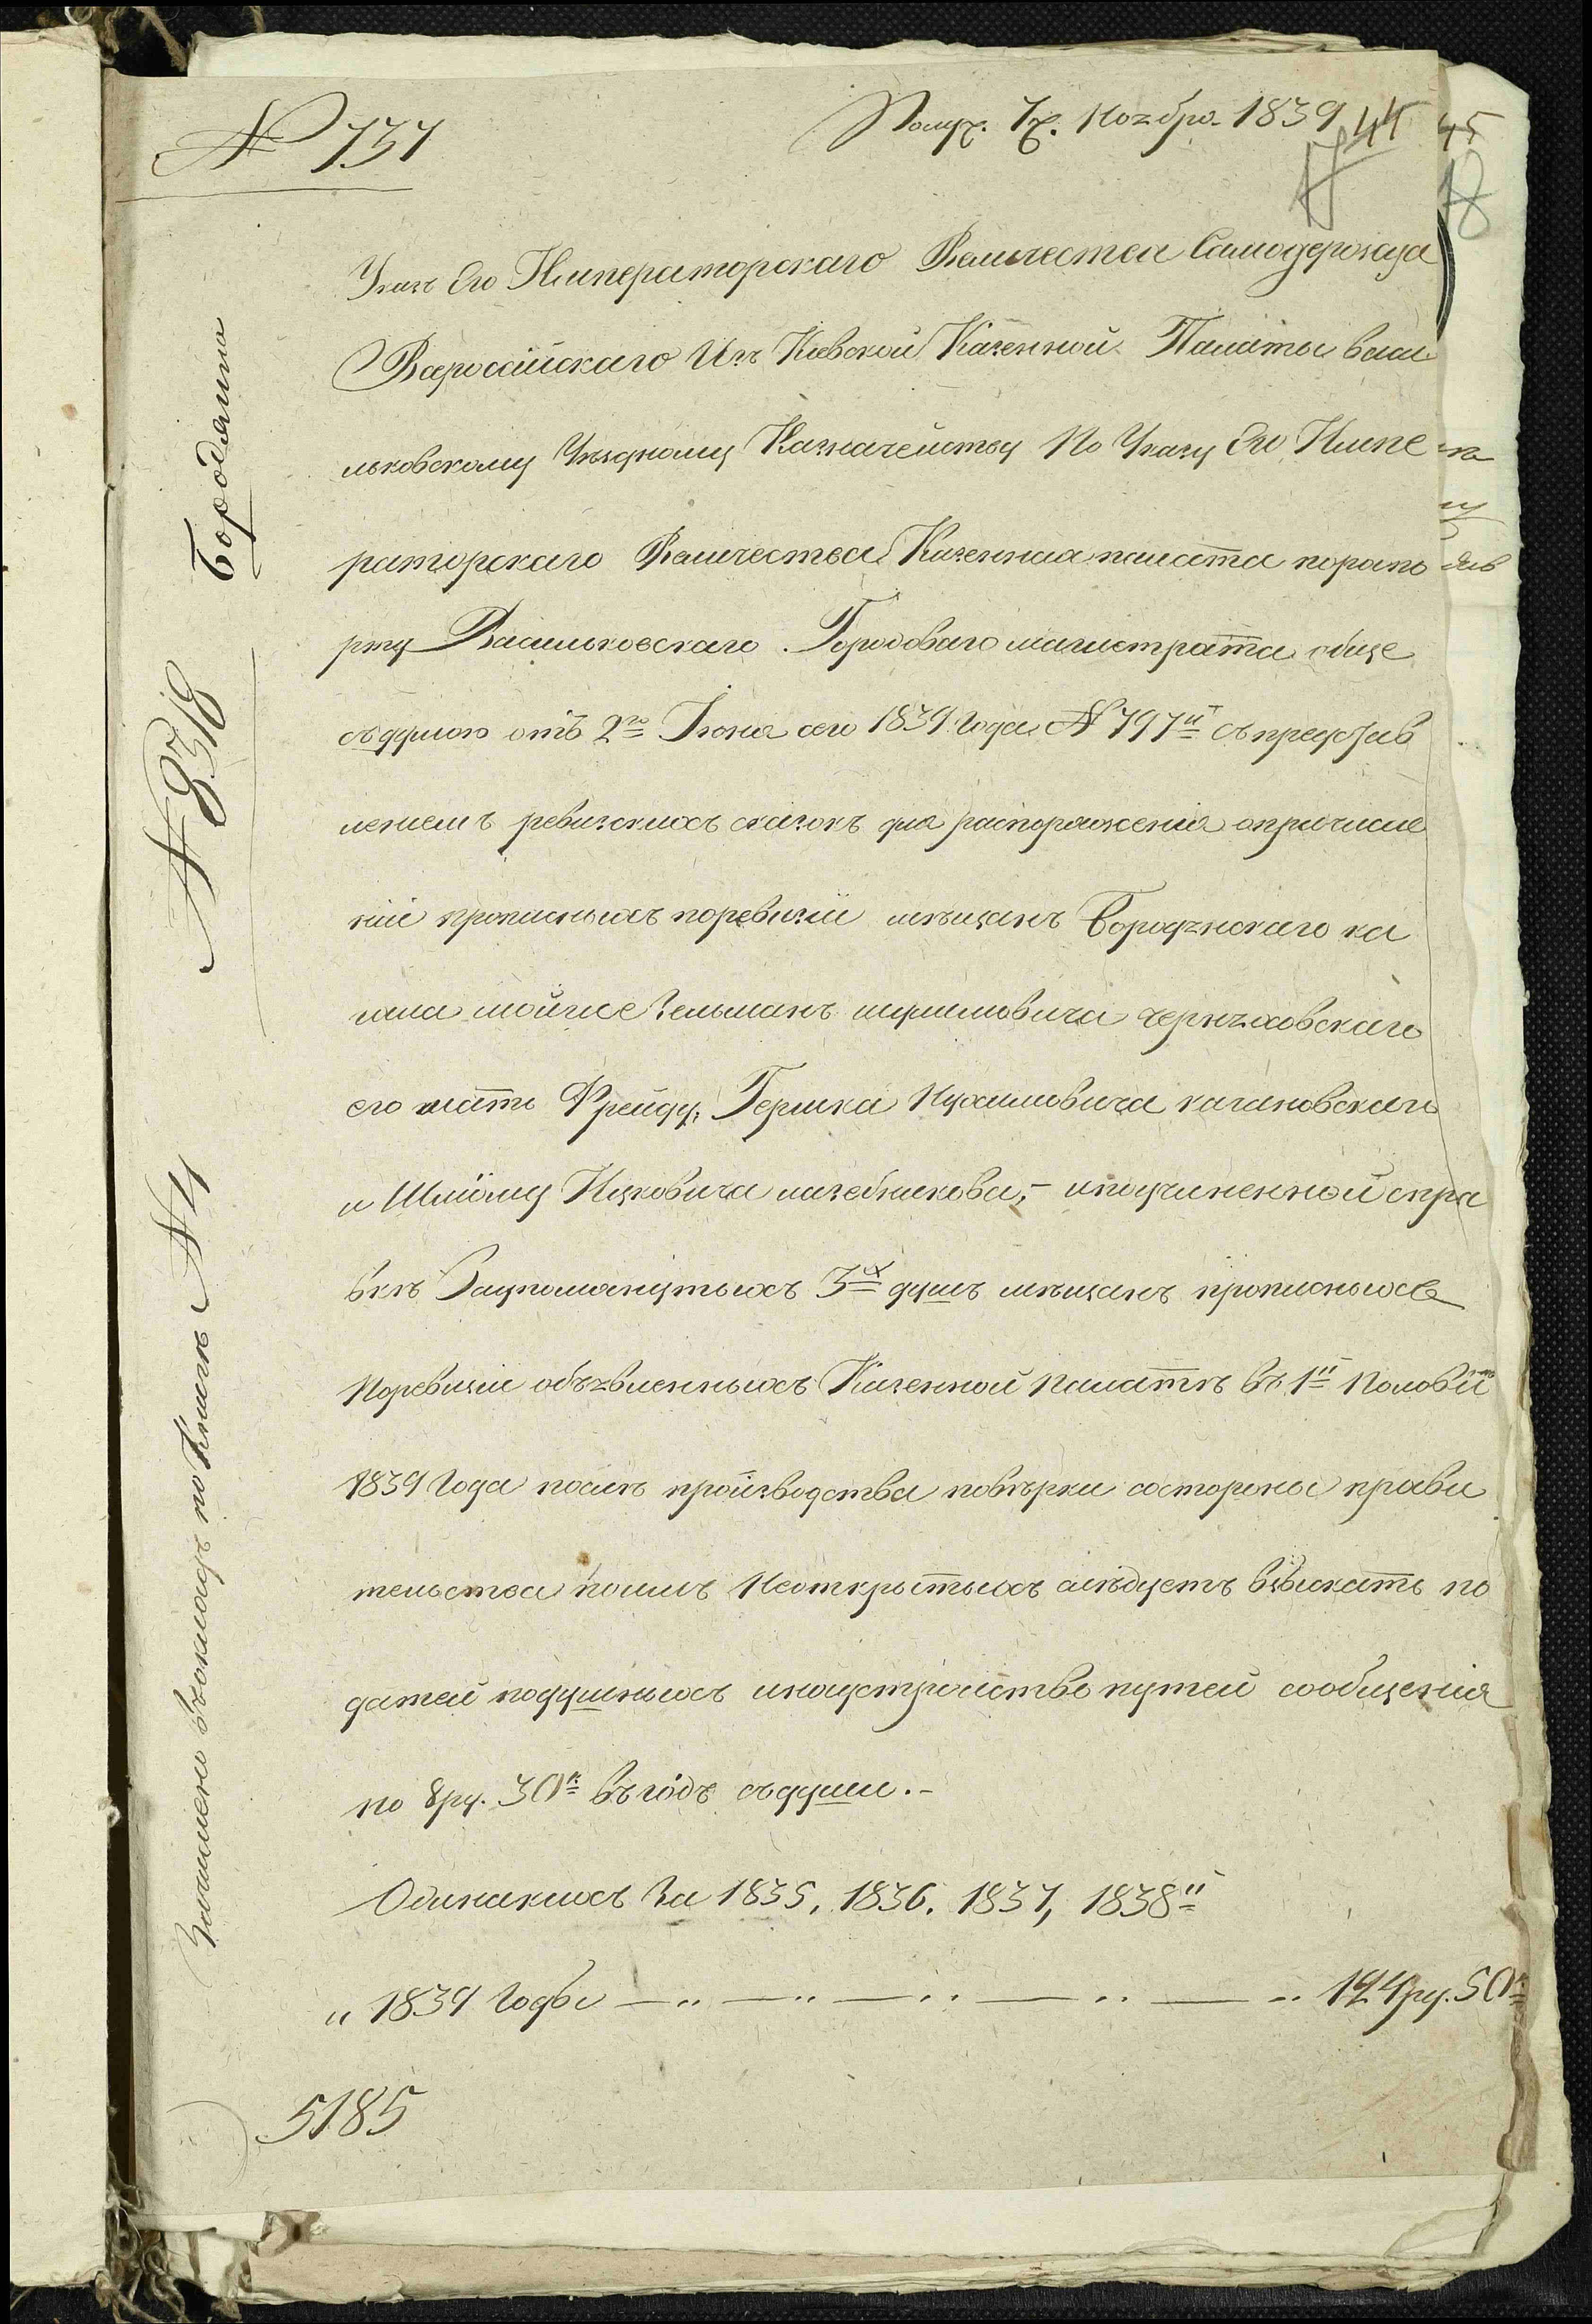 № 737
Получ. 7 Ноября 1839
44
45
Указъ Его Императорскаго Величества Самодержца
Всероссійскаго Изъ Кіевской Казенной Палаты васи
льковскому Уездному Казначейству По Указу Его Импе
раторскаго Величества Казенная палата порапо
рту Васильковскаго Городоваго магистрата обще
съ думою отъ 2го Іюня сего 1839 года № 797й съ представ
леніемъ ревизскихъ сказокъ для распоряженія опричисле
ніи прописныхъ поревизіи мѣщанъ Бородянскаго ка
гала мойше Зельманъ шулимовича черняховскаго
его мать Фрейду, Гершка Мухаимовича кагановскаго
и Шлиому Ицковича лазебникова,- ипоучиненной спра
вкѣ Заупомянутыхъ 3х душъ мѣщанъ прописныхъ
Поревизіи объявленныхъ Казенной палатѣ въ 1й Полови
1839 Года послѣ производства повѣрки состороны прави
тельства поимъ Неоткрытыхъ слѣдуетъ взыскать по
датей подушныхъ инаустройство путей сообщенія
по 8ру. 30к. въ годъ съдуши.-
Одинакихъ За 1835, 1836, 1837, 1838й
" 1839 Годы 124ру. 50к.
5185
Бородянка
№ 8318
Зачислено въокладъ по Книгѣ № 4